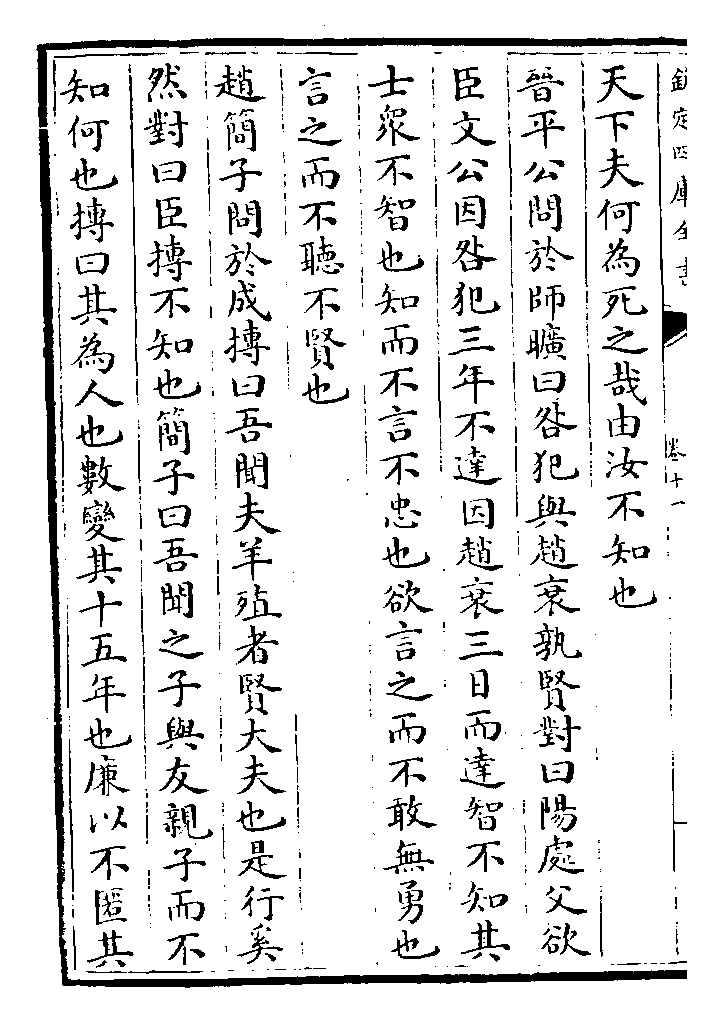 欽定四庫全書 卷十一
天下夫何為死之哉由汝不知也
晉平公問於師曠曰咎犯與趙衰孰賢對曰陽處父欲
臣文公因咎犯三年不達因趙衰三日而達智不知其
士眾不智也知而不言不忠也欲言之而不敢無勇也
言之而不聽不賢也
趙簡子問於成摶曰吾聞夫羊殖者賢大夫也是行奚
然對曰臣摶不知也簡子曰吾聞之子與友親子而不
知何也摶曰其為人也數變其十五年也廉以不匿其